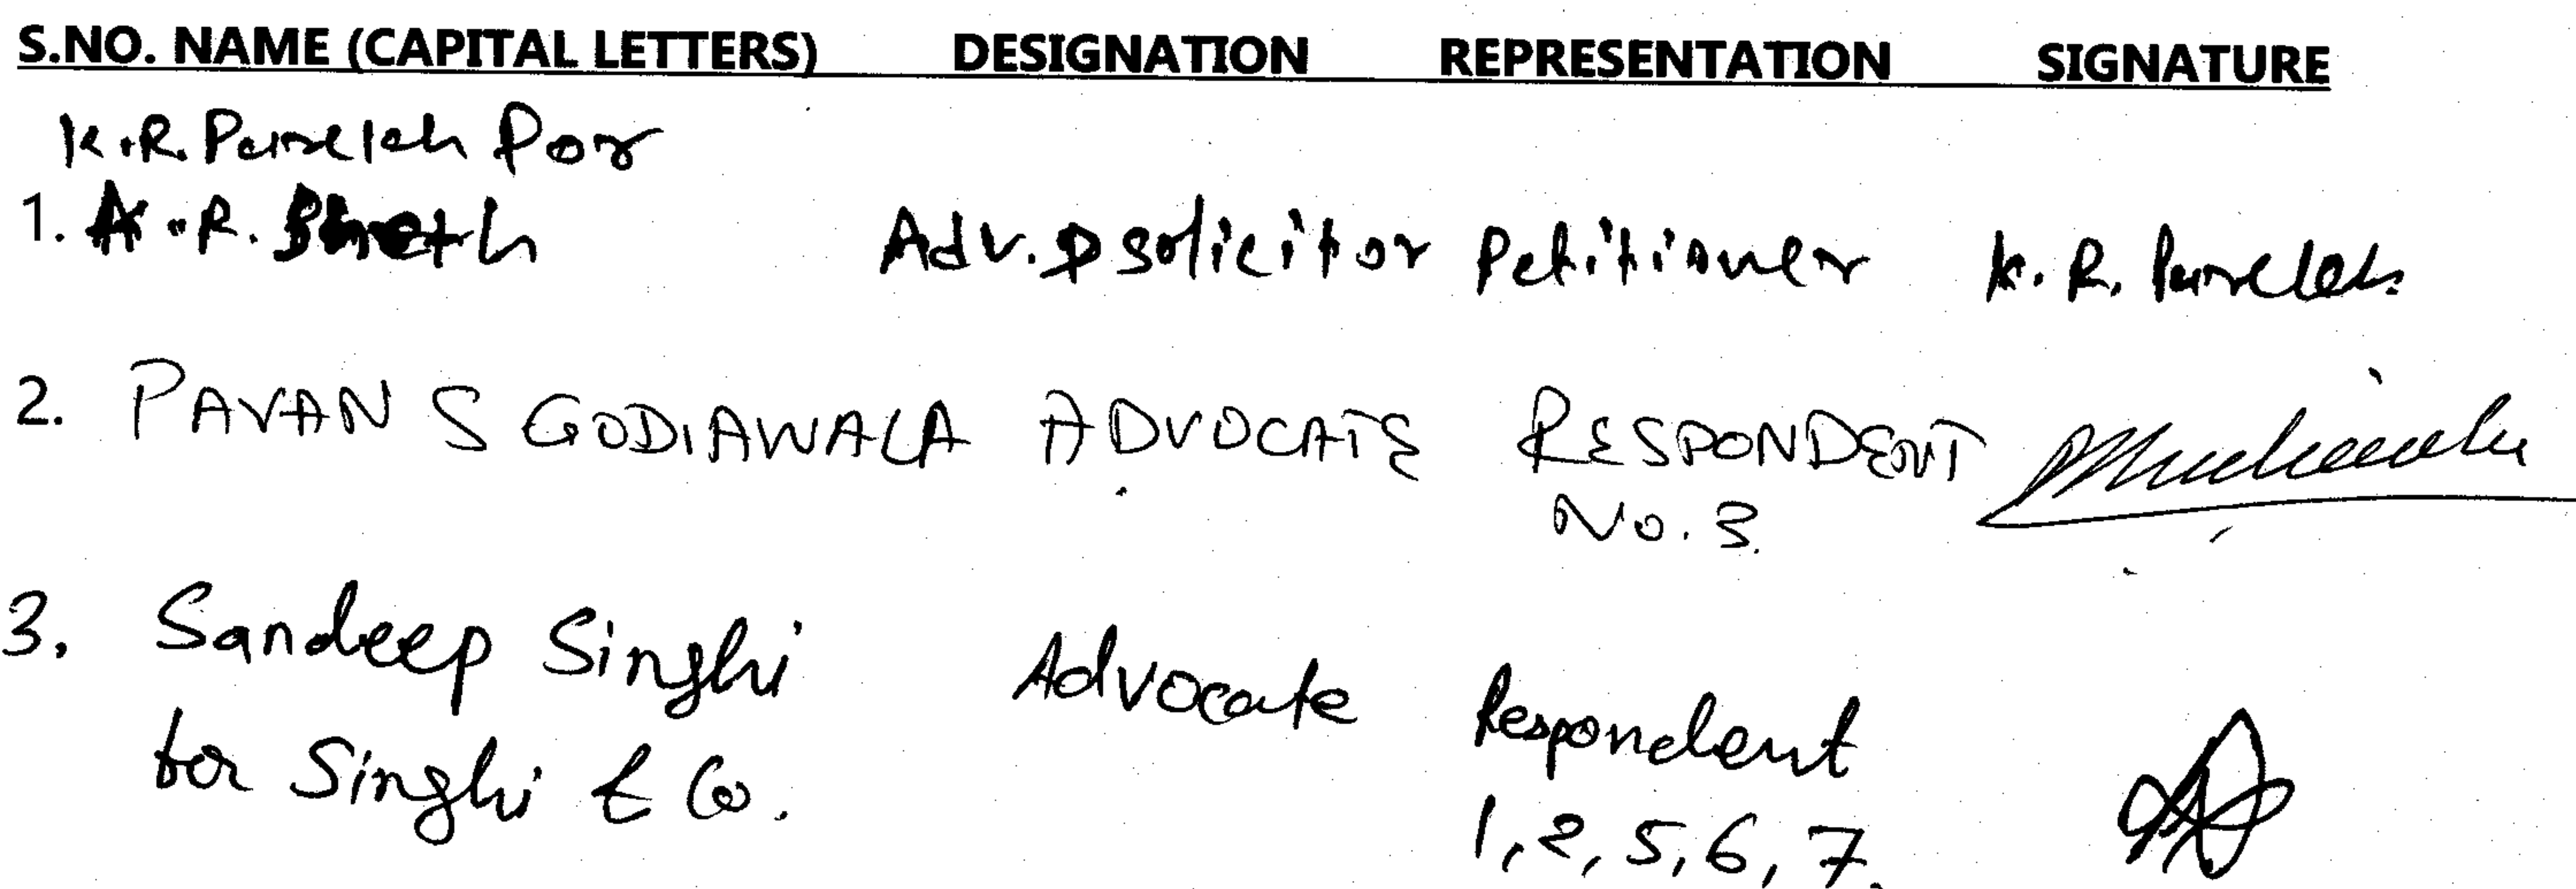 S.NO. NAME (CAPITAL LETTERS) DESIGNATION REPRESENTATION SIGNATURE
K.R. Parekh for
1. A.R. Sheth Adv. & solicitor Petitioner K.R. Parekh
2. PAVAN S GODIAWALA ADVOCATE RESPONDENT
No. 3.
3. Sandeep Singhi Advocate Respondent
for Singhi & Co. 1, 2, 5, 6, 7.